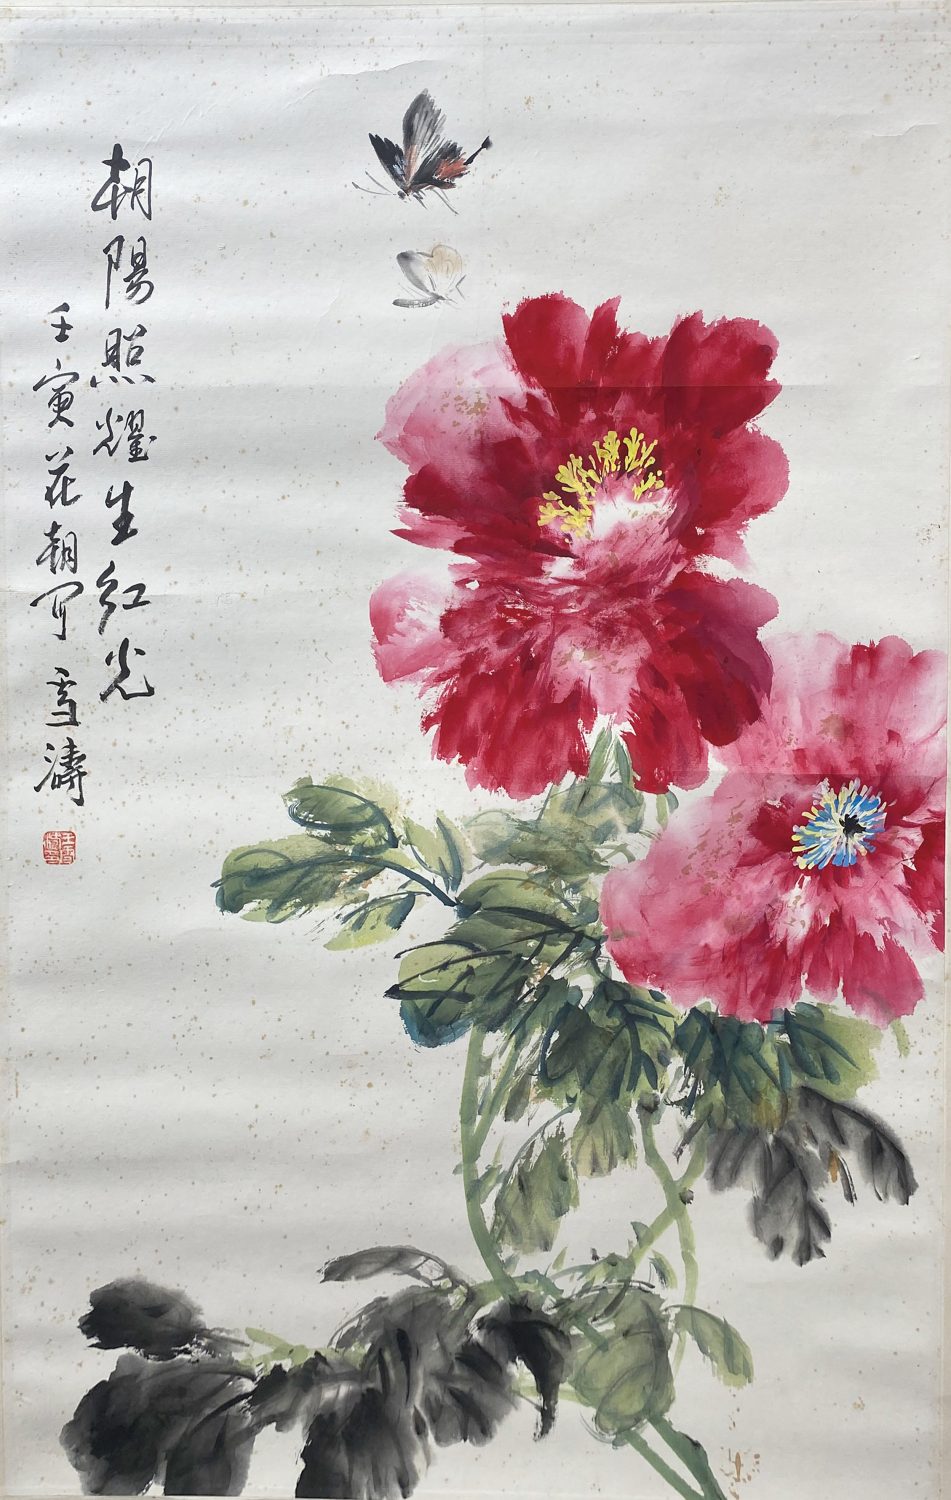 朝陽照耀生紅光
壬寅花朝寫雪濤